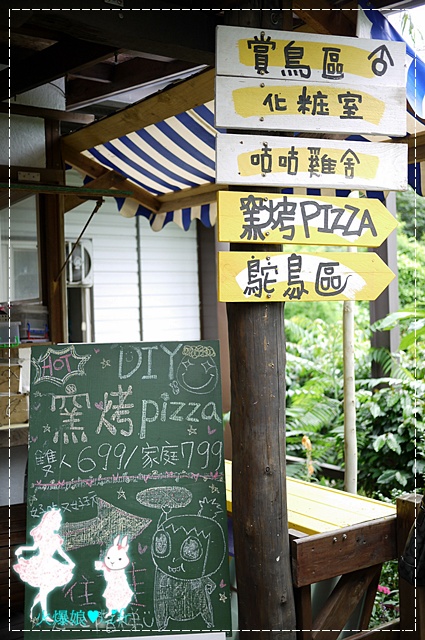 賞鳥區
化粧室
咕咕雞舍
窯烤PIZZA
鴕鳥區
HOT
DIY
窯烤pizza
雙人699/家庭799
火爆娘♥